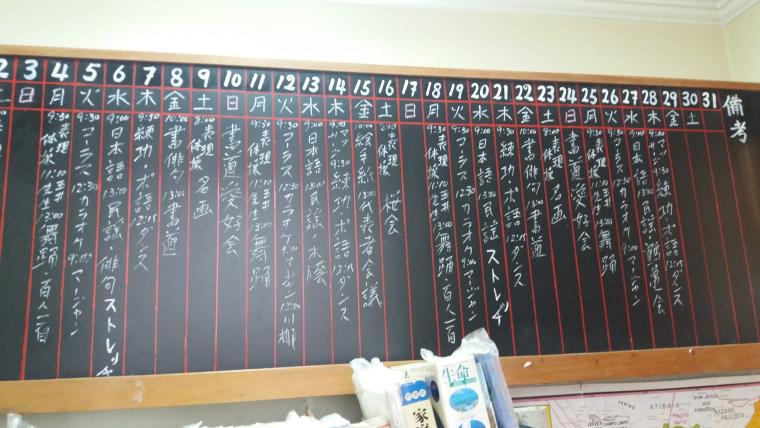 2 3 4 5 6 7 8 9 10 11 12 13 14 15 16 17 18 19 20 21 22 23 24 25 26 27 28 29 30 31 備考
土 日 月 火 水 木 金 土 日 月 火 水 木 金 土 日 月 火 水 木 金 土 日 月 火 水 木 金 土
9:30 表現体操 11:10 玉井先生 13:00 舞踊・百人一首
9:30 コーラス 12:30 カラオケ 9:00 マージャン
9:00 日本語 13:00 民謡 俳句 ストレッチ
9:30 練功 ポ語 12:15 ダンス
10:00 書俳句 13:00 書道
8:00 表現体操 名画
書道愛好会
9:30 表現体操 11:10 玉井先生 13:00 舞踊
9:30 コーラス 12:30 カラオケ 9:00 マージャン 川柳
9:00 日本語 13:00 民謡
9:30 練功 ポ語 12:15 ダンス
10:00 絵手紙 13:00 代表者会議
8:00 表現体操 桜会
9:30 表現体操 11:10 玉井先生 13:00 舞踊・百人一首
9:30 コーラス 12:30 カラオケ 9:00 マージャン
9:00 日本語 13:00 民謡 ストレッチ
9:30 練功 ポ語 12:15 ダンス
10:00 書俳句 13:00 書道
9:30 表現体操 名画
書道愛好会
9:30 表現体操 11:10 玉井先生 13:00 舞踊
9:30 コーラス 12:30 カラオケ 9:00 マージャン
9:00 日本語 13:00 民謡 運会
9:30 練功 ポ語 12:15 ダンス
生命
家
ATIBAIA
BOM JESUS DOS PERDÕES
NAZARÉ PAULISTA